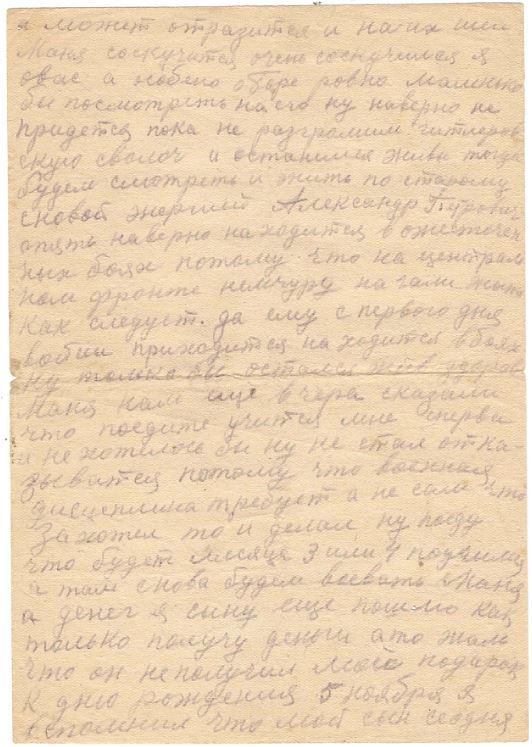 и может отразится и на их
Маня соскучится очень соскучился я
овас а
бы посмотреть на его ну наверно не
придется пока не разгромим гитлеров
скую сволоч и останимся живы тогда
будем смотреть и жить по старому
сновой энергией Александр
опять наверно находится в ожесточен
ных боях потому что на централ
ном фронте немчуру начали
как следует. да ему с первого дня
войны приходится находится в боях
ну только бы остался жив здоров
Маня нам еще вчера сказали
что поедите учится мне сперва
и не хотелось бы ну не стал отка-
зыватся потому что военная
дисцеплина требует а не сам что
захотел то и делай ну поеду
что будет месяца 3 или 4 поучимся
а там снова будем воевать Маня
а денег я сыну еще пошлю как
только получу деньги ато жаль
что он неполучил моего подарка
К дню рождения 5 ноября я
вспомнил что мой сын сегодня